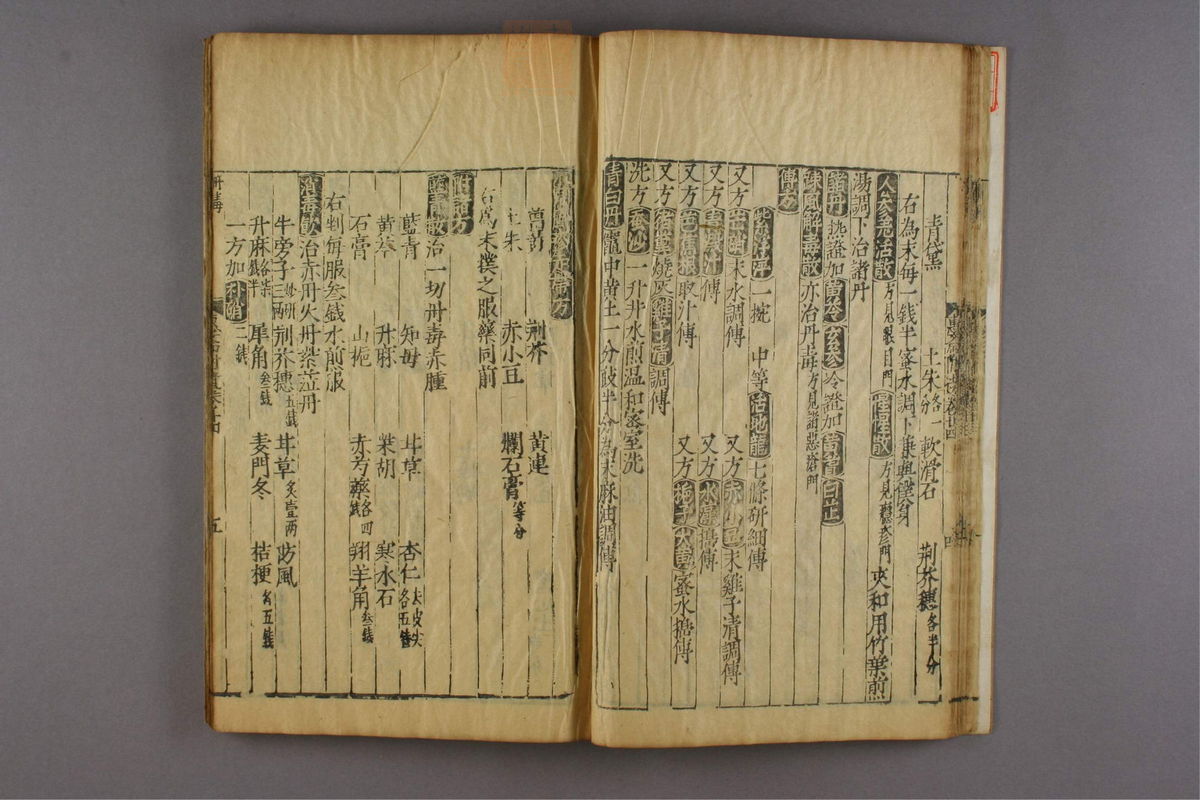 青黛 土朱各一分 軟滑石 荆芥穗各半分
右為末每一錢半蜜水調下藥與撲身
人參羌活散方見 惺惺散方見 夾和用竹葉煎
湯調下治諸丹
諸丹熱證加黃芩玄參冷證加 白芷
踈風解毒散亦治丹毒方見諸惡瘡門
傅方
浮萍一掬 中等活地龍七條研細傅
又方 末水調傅 又方赤小豆末雞子清調傅
又方 汁傅 又方水 搗傅
又方芭蕉根取汁傅 又方梔子大黃蜜水搗傅
又方 燒灰雞子清調傅
洗方蚕沙一升井水煎温和密室洗
青白丹 竈中黃土一分 半分為末麻油調傅
荆芥 黃連
土朱 赤小豆 爛石膏等分
右為末撲之服藥同前
附諸方
藍青散治一切丹毒赤腫
藍青 知母 甘草 杏仁去皮尖各五錢
黃芩 升麻 柴胡 寒水石
石膏 山梔 赤芍藥各四錢 羚羊角叁錢
右剉每服叁錢水煎服
消毒飲治赤丹火丹紫萍丹
牛旁子三兩炒研 荆芥穗五錢 甘草炙壹兩 防風
升麻各柒錢半 犀角叁錢 麦門冬 桔梗各五錢
一方加 二錢
丹毒
五